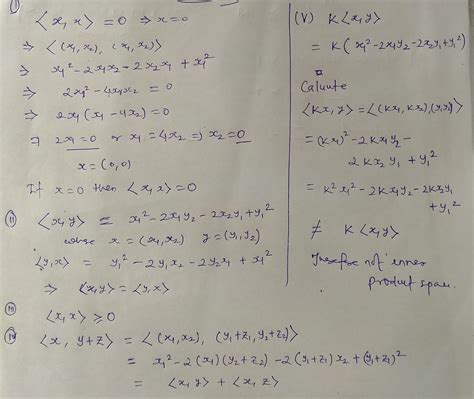 (i)
<x, x> = 0 ⇒ x = 0
⇒ <(x₁, x₂), (x₁, x₂)>
⇒ x₁² - 2x₁x₂ - 2x₂x₁ + x₁²
⇒ 2x₁² - 4x₁x₂ = 0
⇒ 2x₁(x₁ - 4x₂) = 0
⇒ 2x₁ = 0 or x₁ = 4x₂ ⇒ x₂ = 0
x = (0,0)
If x = 0 then <x, x> = 0
(ii) <x, y> = x₁² - 2x₁y₂ - 2x₂y₁ + y₁²
where x = (x₁, x₂) y = (y₁, y₂)
<y, x> = y₁² - 2y₁x₂ - 2y₂x₁ + x₁²
⇒ <x, y> = <y, x>
(iii) <x, x> ≥ 0
(iv) <x, y+z> = <(x₁, x₂), (y₁+z₁, y₂+z₂)>
= x₁² - 2(x₁)(y₂+z₂) - 2(y₁+z₁)x₂ + (y₁+z₁)²
= <x, y> + <x, z>
(v) K<x, y>
= K(x₁² - 2x₁y₂ - 2x₂y₁ + y₁²)
Calunte
<Kx, y> = <(Kx₁, Kx₂), (y₁, y₂)>
= (Kx₁)² - 2Kx₁y₂ -
2Kx₂y₁ + y₁²
= K²x₁² - 2Kx₁y₂ - 2Kx₂y₁
+ y₁²
≠ K<x, y>
Therefore not inner
product space.